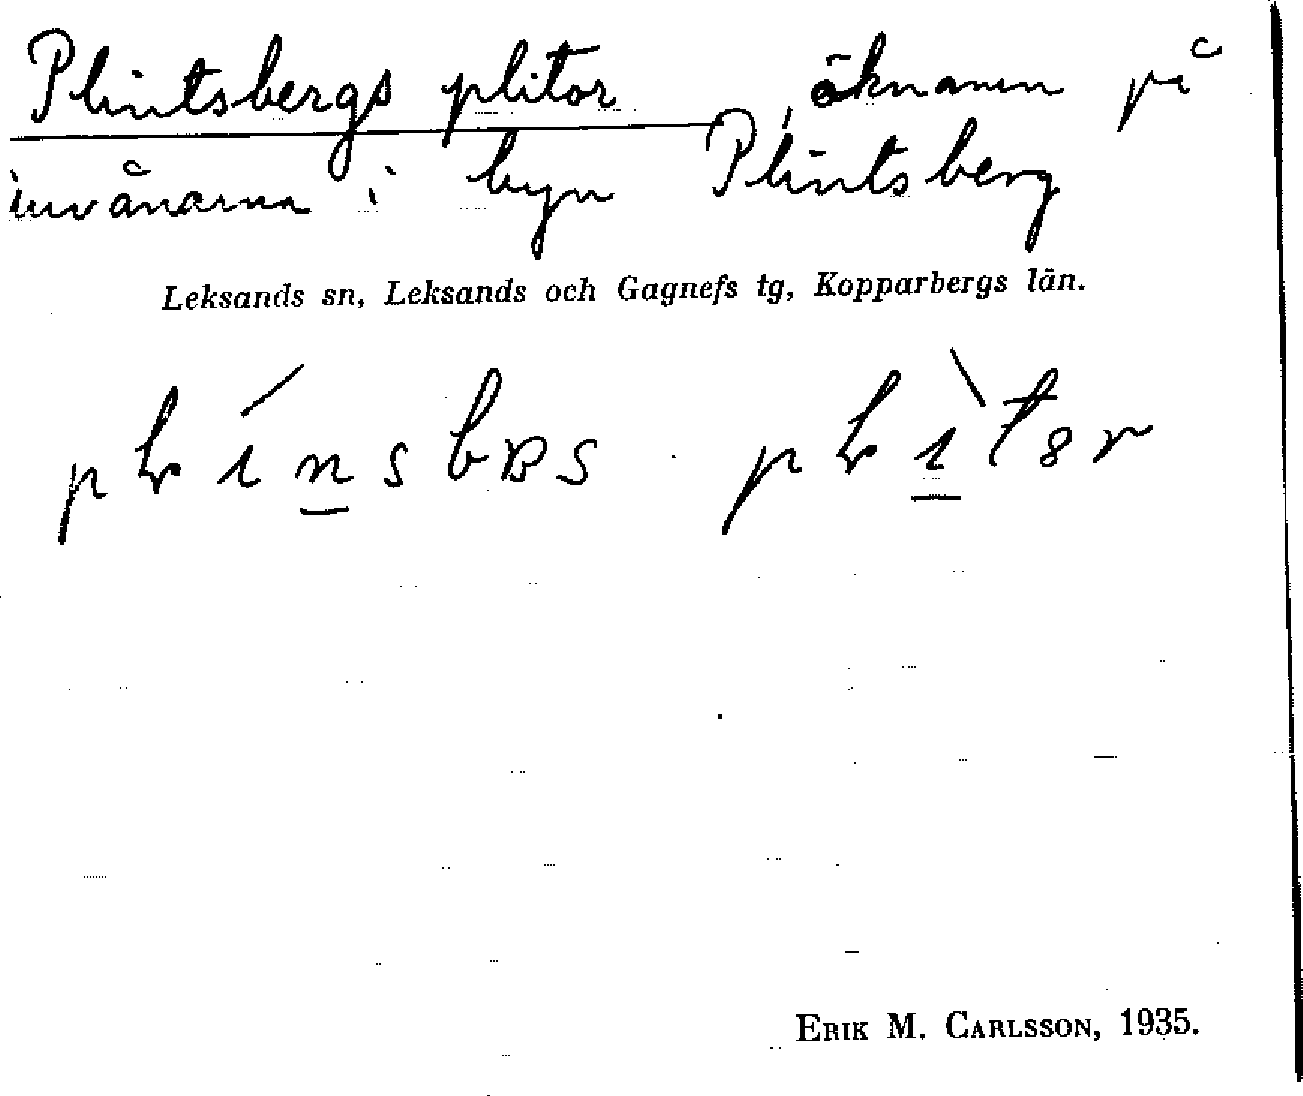 Plintsbergs plitor, öknamn på
invånarna i byn Plintsberg
Leksands sn, Leksands och Gagnefs tg, Kopparbergs län.
ERIK M. CARLSSON, 1935.